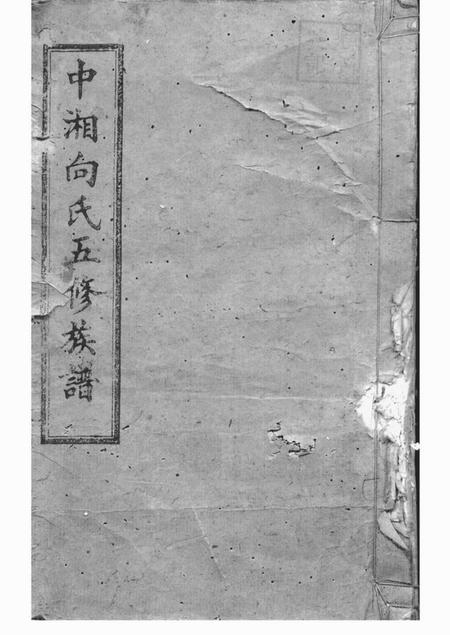 中湘向氏五修族譜